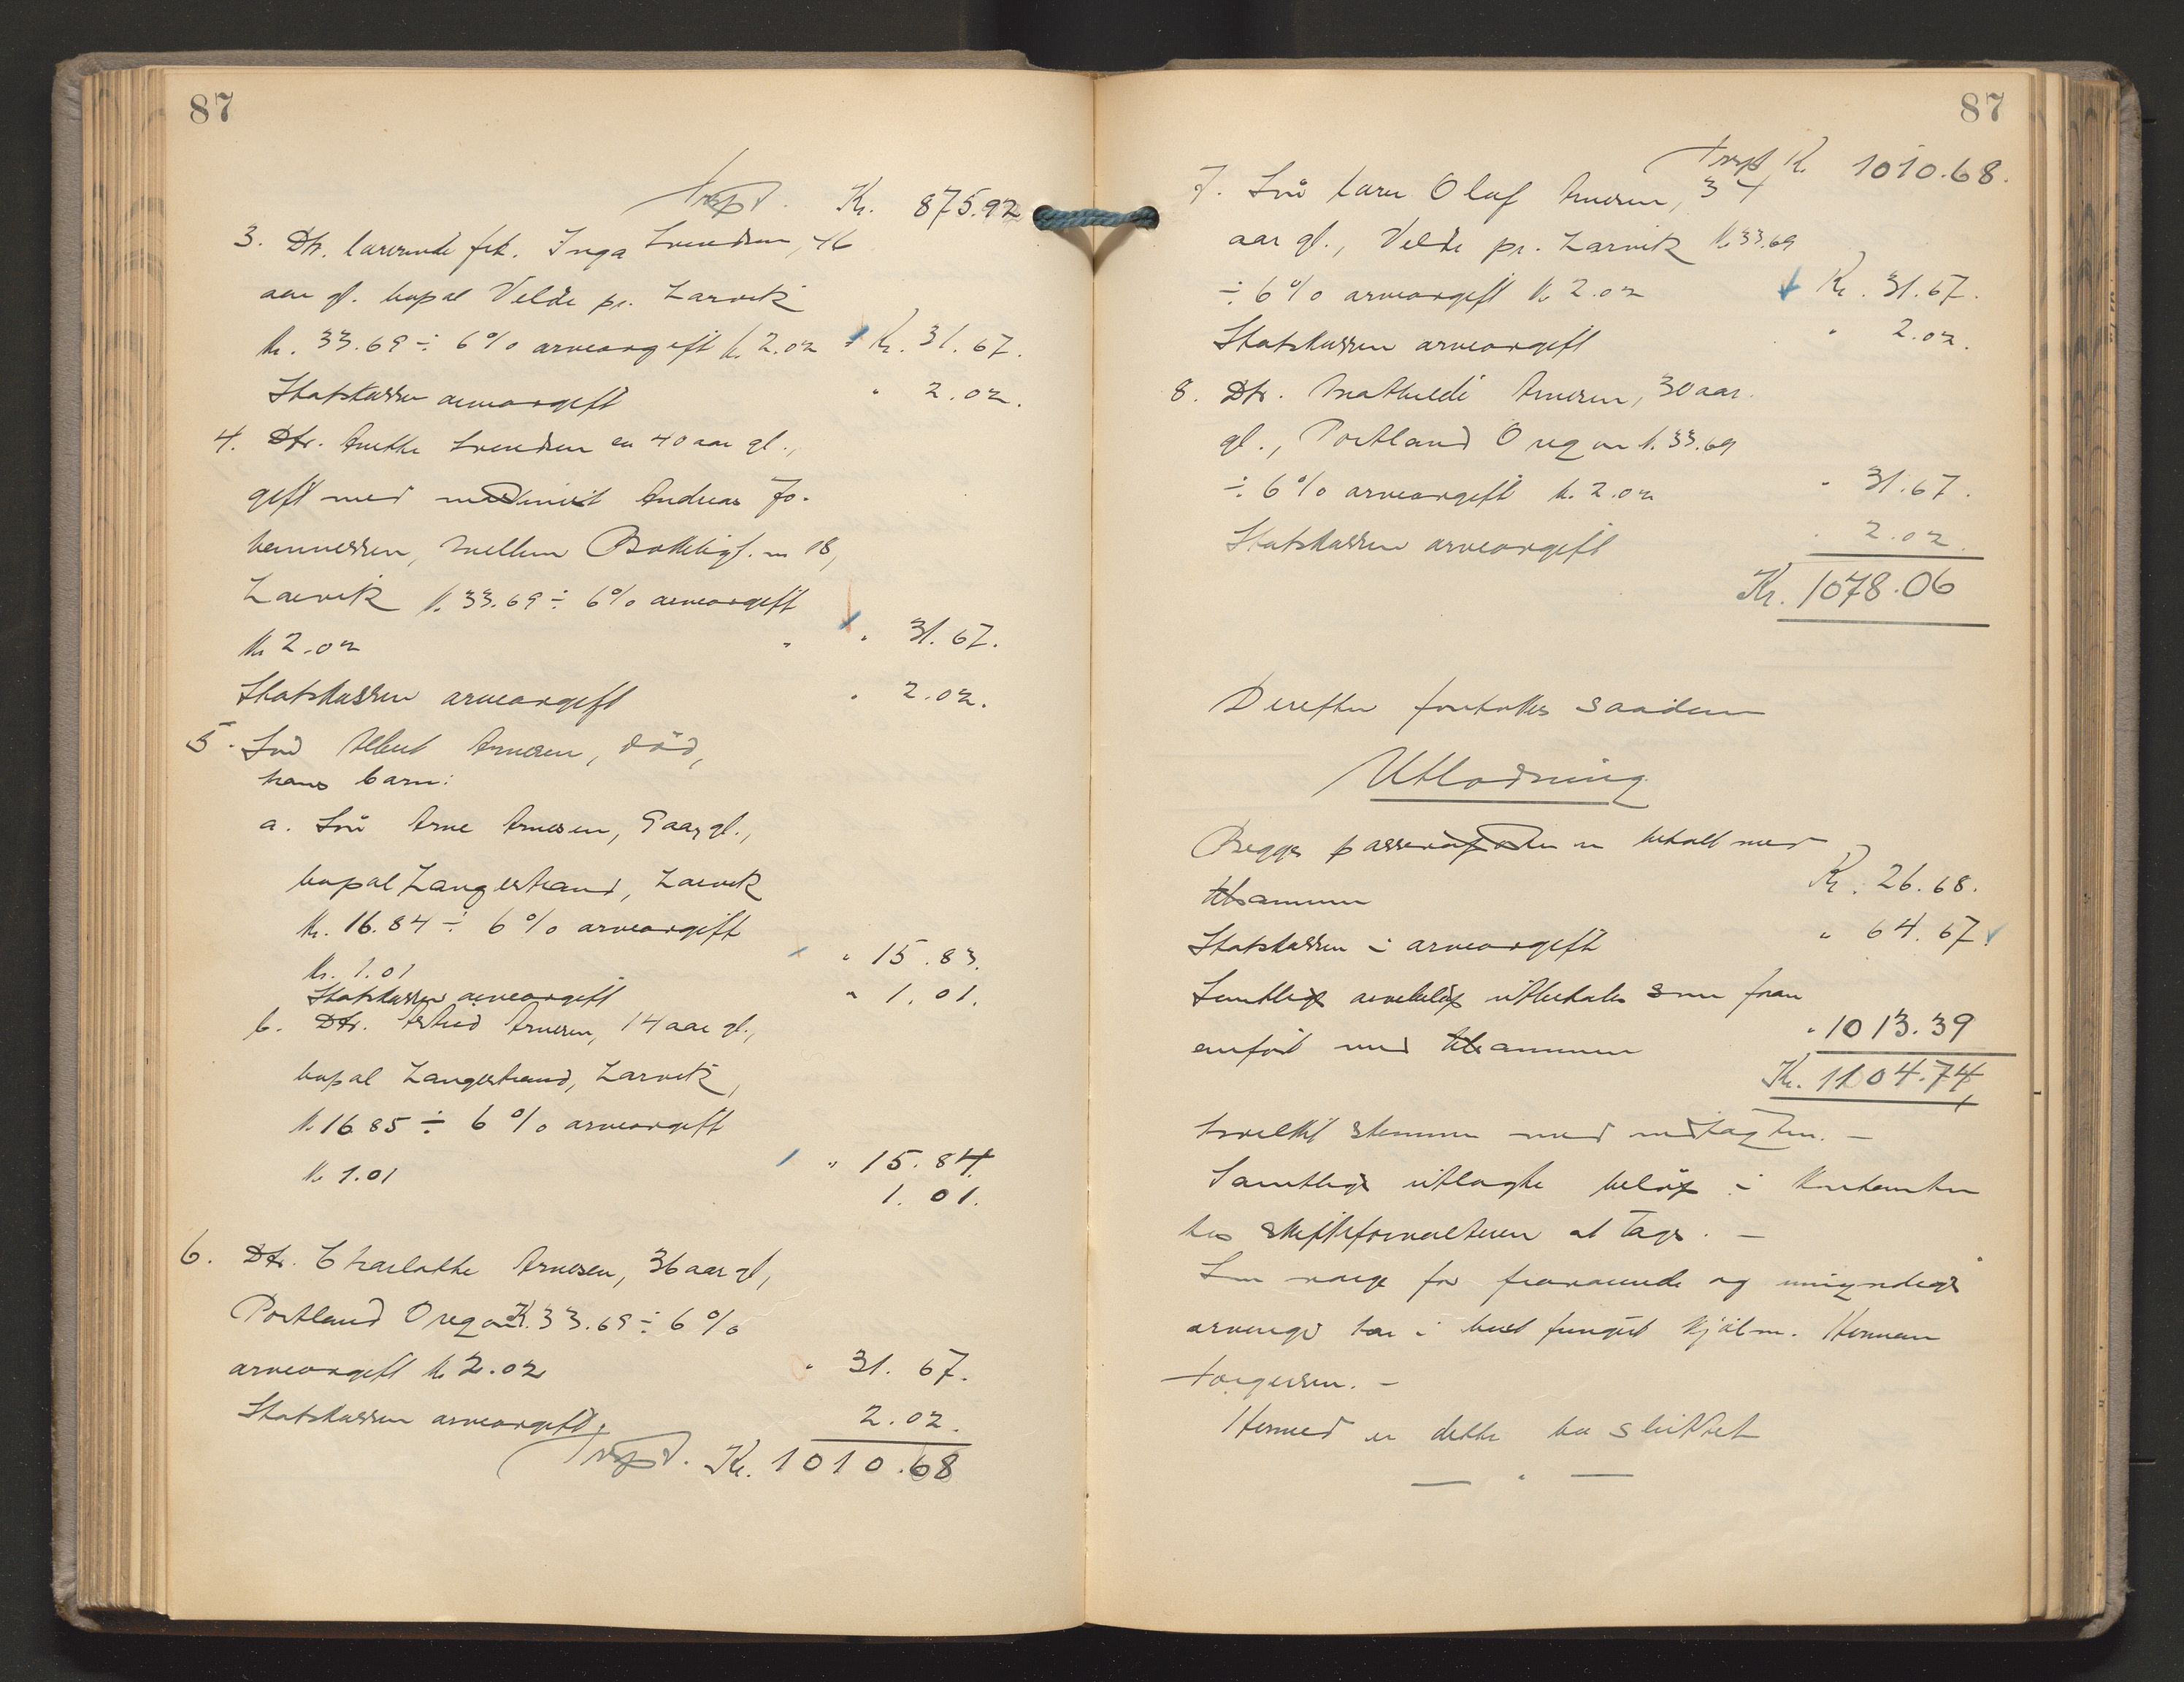 87
Trspt. Kr. 875.92
3. Dtr. lærerinde frk. Inga Svendsen, 46
aar gl. bopæl Velde pr. Larvik
Kr. 33.69 ÷ 6% arveavgift kr. 2.02 Kr. 31.67.
Statskassen arveavgift " 2.02.
4. Dtr. Anethe Svendsen en 40 aar gl.,
gift med maskinist Andreas Jo-
hannessen, mellem gt. 18,
Larvik kr. 33.69 ÷ 6% arveavgift
kr. 2.02 " " 31.67.
Statskassen arveavgift " 2.02.
5. Søn Albert Arnesen, död,
hans barn:
a. Søn Arne Arnesen, 9 aar gl.,
bopæl Langestrand, Larvik
kr. 16.84 ÷ 6% arveavgift
kr. 1.01 " 15.83.
Statskassen arveavgift " 1.01.
b. Dtr. Astrid Arnesen, 14 aar gl.,
bopæl Langestrand, Larvik,
kr. 16.85 ÷ 6% arveavgift
kr. 1.01 " 15.84.
1.01.
6. Dtr. Charlotte Arnesen, 36 aar gl,
Portland Oregon Kr. 33.69 ÷ 6%
arveavgift kr. 2.02 " 31.67.
Statskassen arveavgift. 2.02.
Trspt. Kr. 1010.68
87
Trspt Kr. 1010.68.
7. Søn lærer Olaf Arnesen, 34
aar gl., Velde pr. Larvik kr. 33.69
÷ 6% arveavgift kr. 2.02 Kr. 31.67.
Statskassen arveavgift " 2.02.
8. Dtr. Mathilde Arnesen, 30 aar.
gl., Portland Oregon kr. 33.69
÷ 6% arveavgift kr. 2.02 " 31.67.
Statskassen arveavgift " 2.02.
Kr. 1078.06
Derefter foretokes saadan
Utlodning
Begges passivaposter er betalt med
tilsammen Kr. 26.68.
Statskassen i arveavgift " 64.67.
Samtlige arvebeløp utbetales som foran
anført med tilsammen " 1013.39
Kr. 1104.74,
hvilket stemmer med indtægten. —
Samtlige utlagte beløp i kontanter
hos skifteforvalteren at tages. —
Som verge for fraværende og umyndige
arvinger har i boet fungert kjøbm. Herman
Torgersen. —
Hermed er dette bo sluttet
— " —